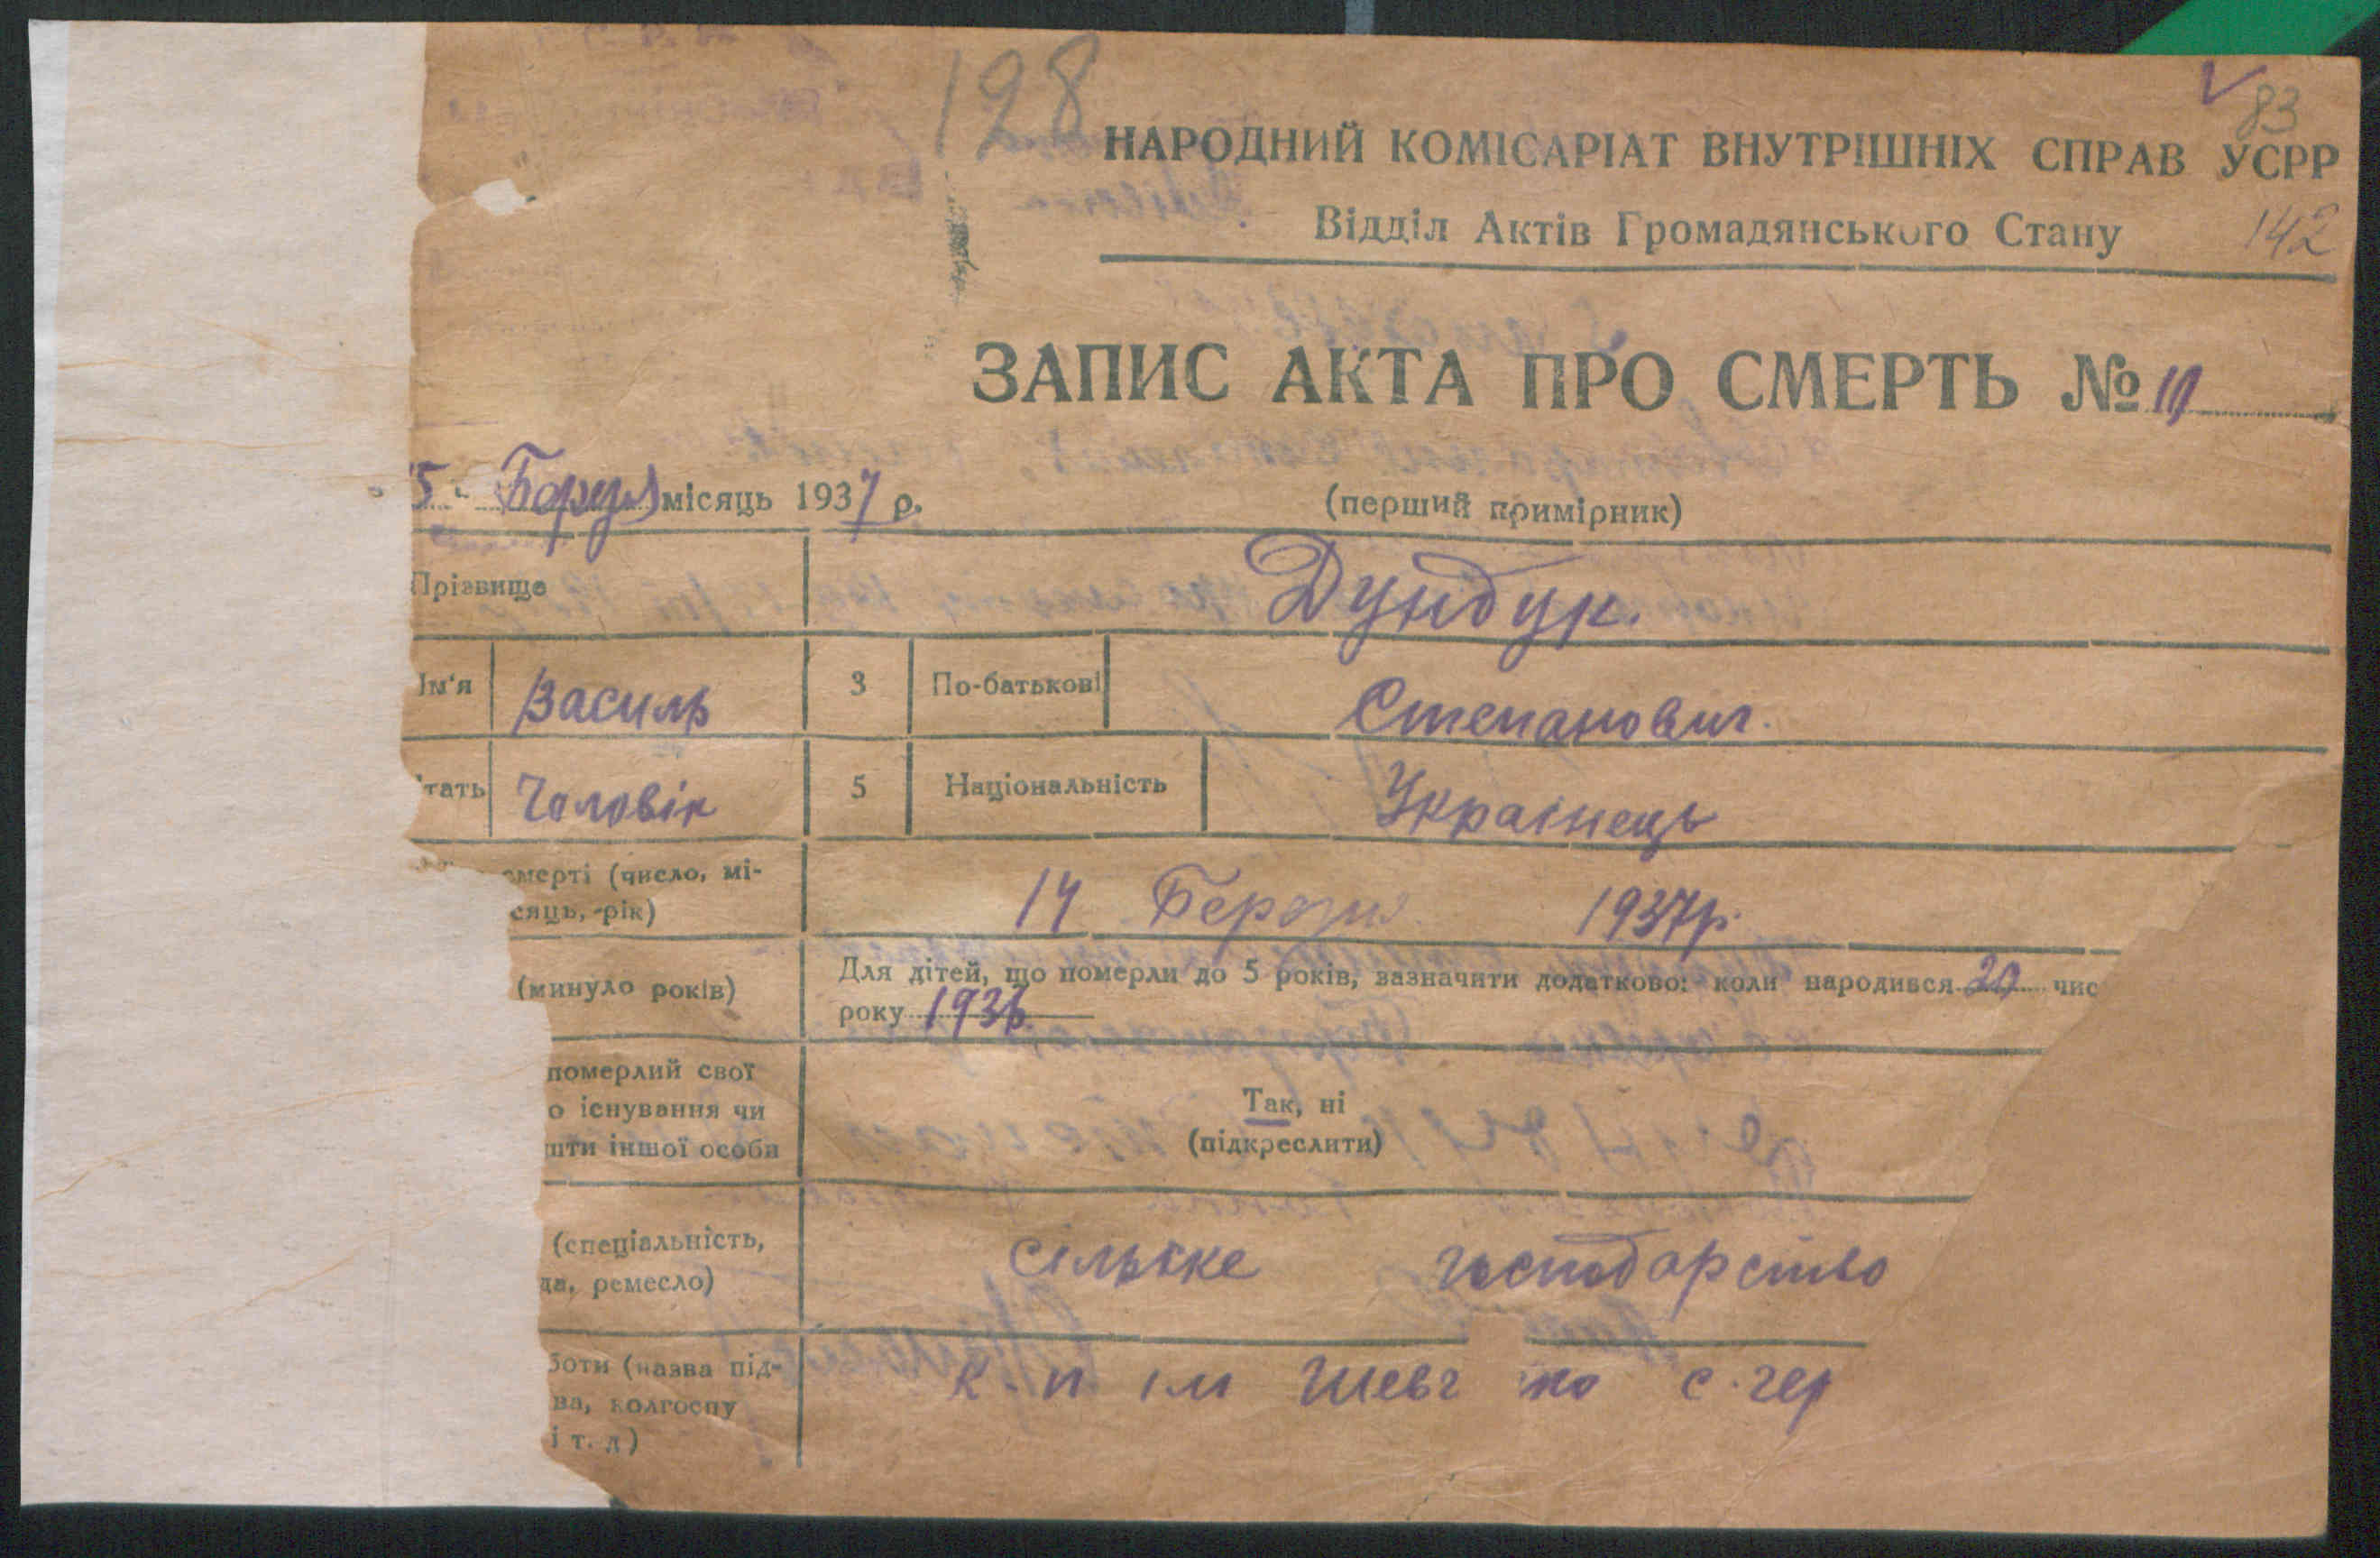 128
83
НАРОДНИЙ КОМІСАРІАТ ВНУТРІШНІХ СПРАВ УСРР
Відділ Актів Громадянського Стану
142
ЗАПИС АКТА ПРО СМЕРТЬ №
5 місяць 1937 р.
(перший примірник)
Прізвище Дундук.
Ім'я Василь 3 По-батькові Степанович.
тать Чоловік 5 Національність Украінець
смерті (число, мі-
сяць, рік)
14 Березня 1937р.
(минуло років)
Для дітей, що померли до 5 років, зазначити додатково: коли народився 20 чис
року 1936
померлий свої
о існування чи
шти іншої особи
Так, ні
(підкреслити)
(спеціальність,
да, ремесло)
сільске господарство
боти (назва під-
ва, колгоспу
і т. д)
к. п ім Шевч ко с. чер